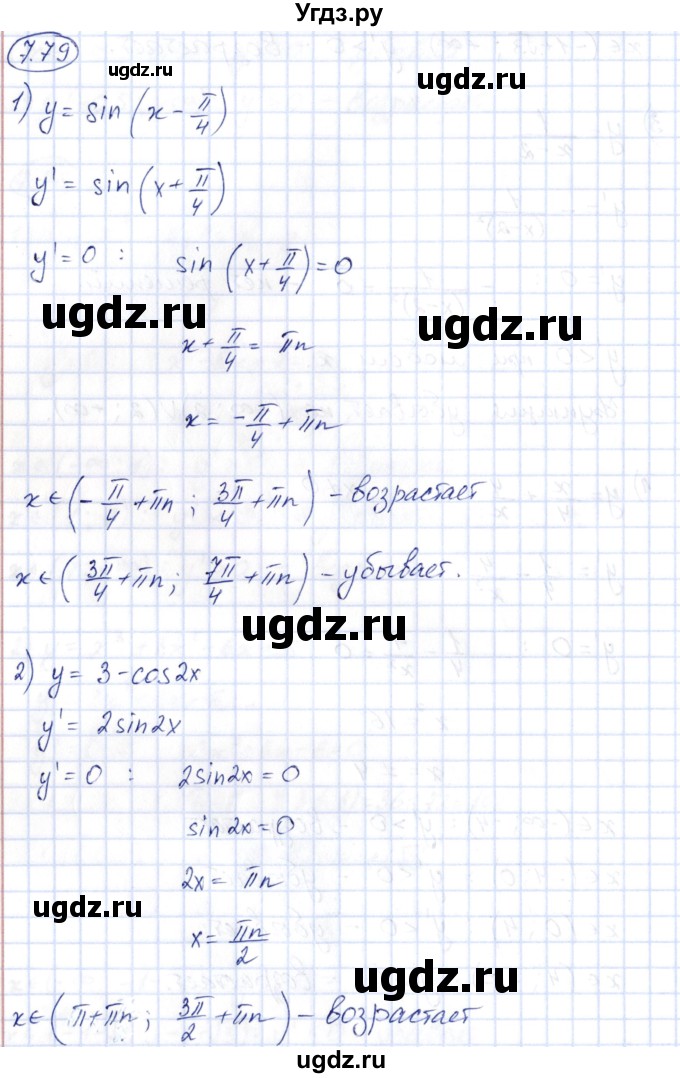 Угдз.ру
7.79
ugdz.ru
1) y = sin(x - π/4)
y' = sin(x + π/4)
y' = 0 : sin(x + π/4) = 0
ugdz.ru
ugdz.ru
x + π/4 = πn
x = -π/4 + πn
x ∈ (-π/4 + πn ; 3π/4 + πn) - возрастает
x ∈ (3π/4 + πn ; 7π/4 + πn) - убывает.
ugdz.ru
2) y = 3 - cos2x
y' = 2sin2x
y' = 0 : 2sin2x = 0
sin2x = 0
2x = πn
ugdz.ru
x = πn/2
ugdz.ru
x ∈ (π + πn ; 3π/2 + πn) - возрастает
ugdz.ru